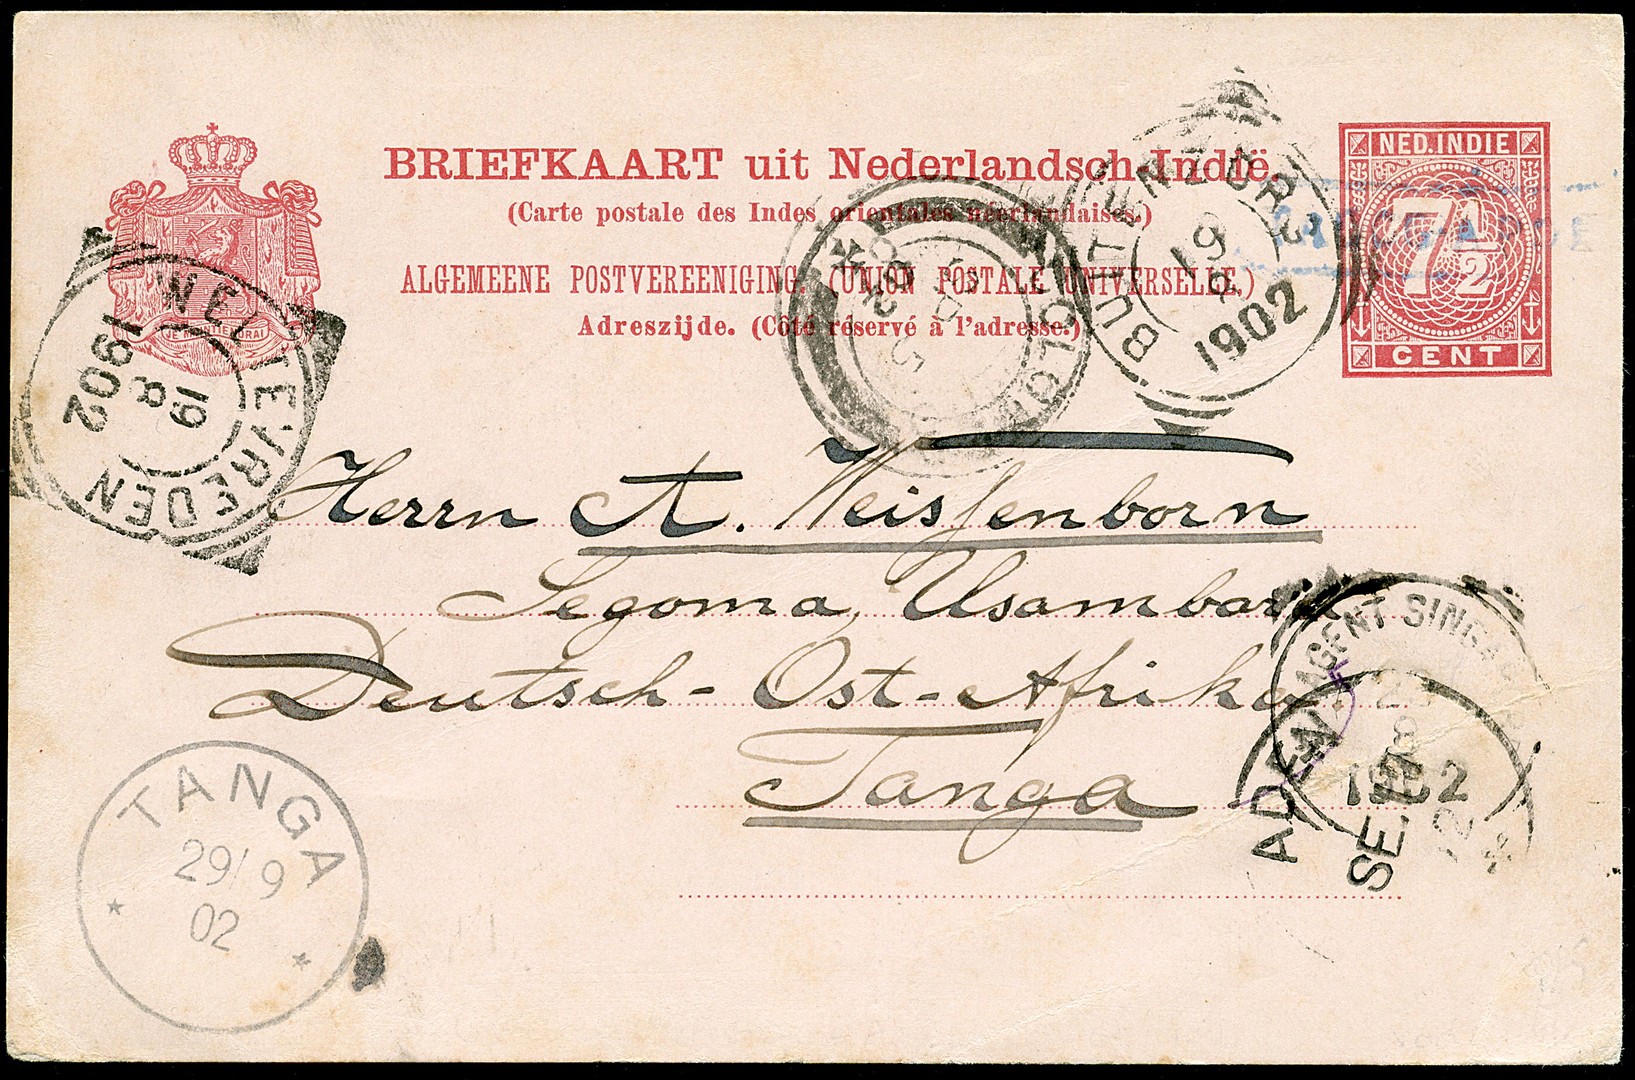 BRIEFKAART uit Nederlandsch-Indië.
(Carte postale des Indes orientales néerlandaises.)
ALGEMEENE POSTVEREENIGING. (UNION POSTALE UNIVERSELLE.)
Adreszijde. (Côté réservé à l'adresse.)
NED. INDIE
7 1/2
CENT
JE MAINTIENDRAI
BUITENZORG
19
8
1902
WELTEVREDEN
19
8
1902
Herrn A. Weissenborn
Segoma, Usambara
Deutsch-Ost-Afrika
Tanga
AGENT SINGAPORE
23
8
1902
ADEN
SE
TANGA
29/9
02